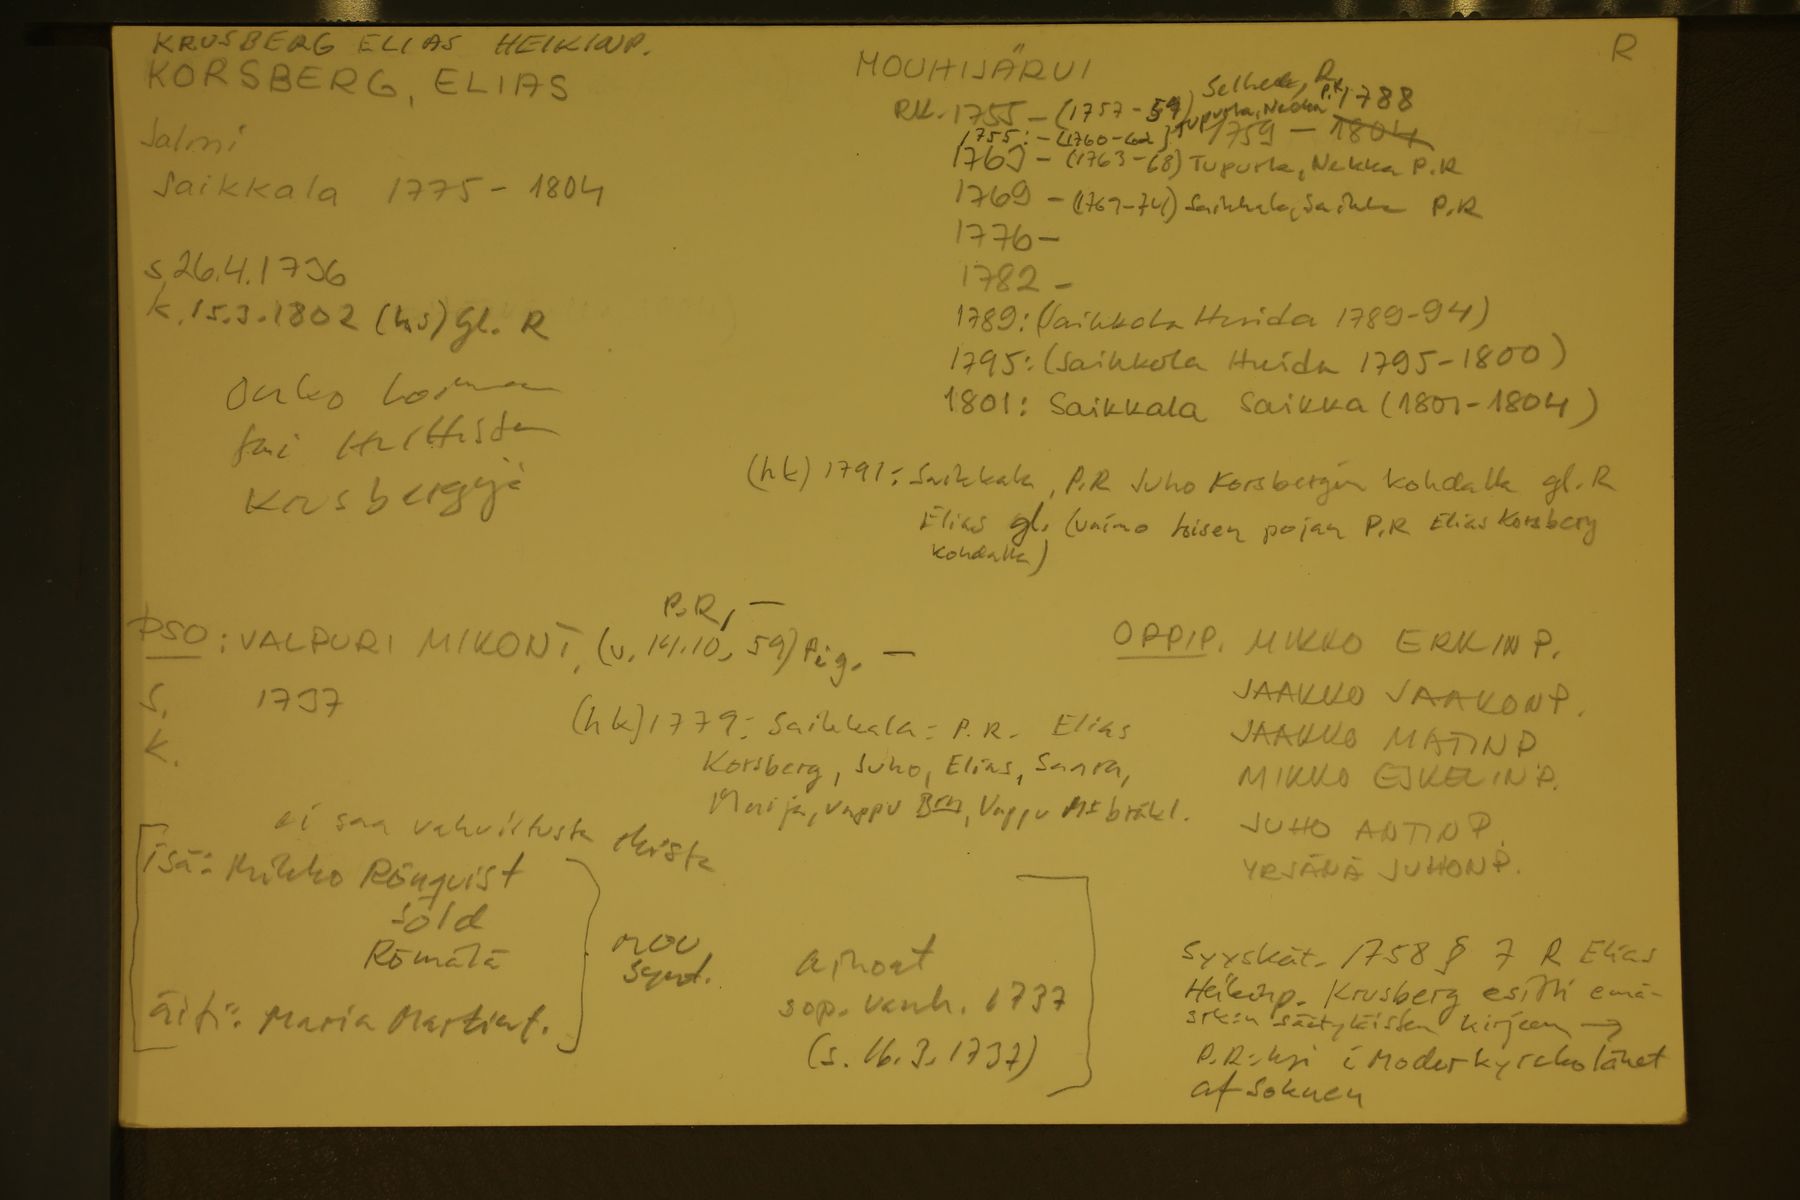 KRUSBERG ELIAS HEIKINP.
KORSBERG, ELIAS
Salmi
Saikkala 1775 - 1804
s. 26.4.1736
k. 15.3.1802 (hs) gl. R
Onko
tai Huittisten
Krusbergejä
R
MOUHIJÄRVI
RK. 1755 - (1757 - 59) Selkee, R
Tupurla, Nekka P.R 1788
1755: - (1760-62) 1759 - 1804
1763 - (1763-68) Tupurla, Nekka P.R
1769 - (1769-74) Saikkala, Saikka P.R
1776 -
1782 -
1789: (Saikkola Huida 1789-94)
1795: (Saikkola Huida 1795-1800)
1801: Saikkala Saikka (1801-1804)
(hk) 1791: Saikkala, P.R Juho Korsbergin kohdalla gl. R
Elias gl. (vaimo toisen pojan P.R Elias Korsberg
kohdalla)
P.R, -
PSO: VALPURI MIKONT. (v. 14.10. 59) Pig. -
S. 1737
K.
(hk) 1779: Saikkala: P.R. Elias
Korsberg, Juho, Elias, Saara,
Marija, Vappu Brn, Vappu
ei saa vahvistusta
Isä: Mikko Rönqvist
sold
Römälä
äiti: Maria Martint.
MOU
synt.
ainoat
sop. vanh. 1737
(s. 16.3.1737)
OPPIP. MIKKO ERKINP.
JAAKKO JAAKONP.
JAAKKO MATINP
MIKKO ESKELINP.
JUHO ANTINP.
YRJÄNÄ JUHONP.
Syyskät. 1758 § 7 R Elias
Heikinp. Krusberg esitti emä-
srk:n säätyläisten kirjeen →
P.R:ksi i Moderkyrcholänet
af Soknen